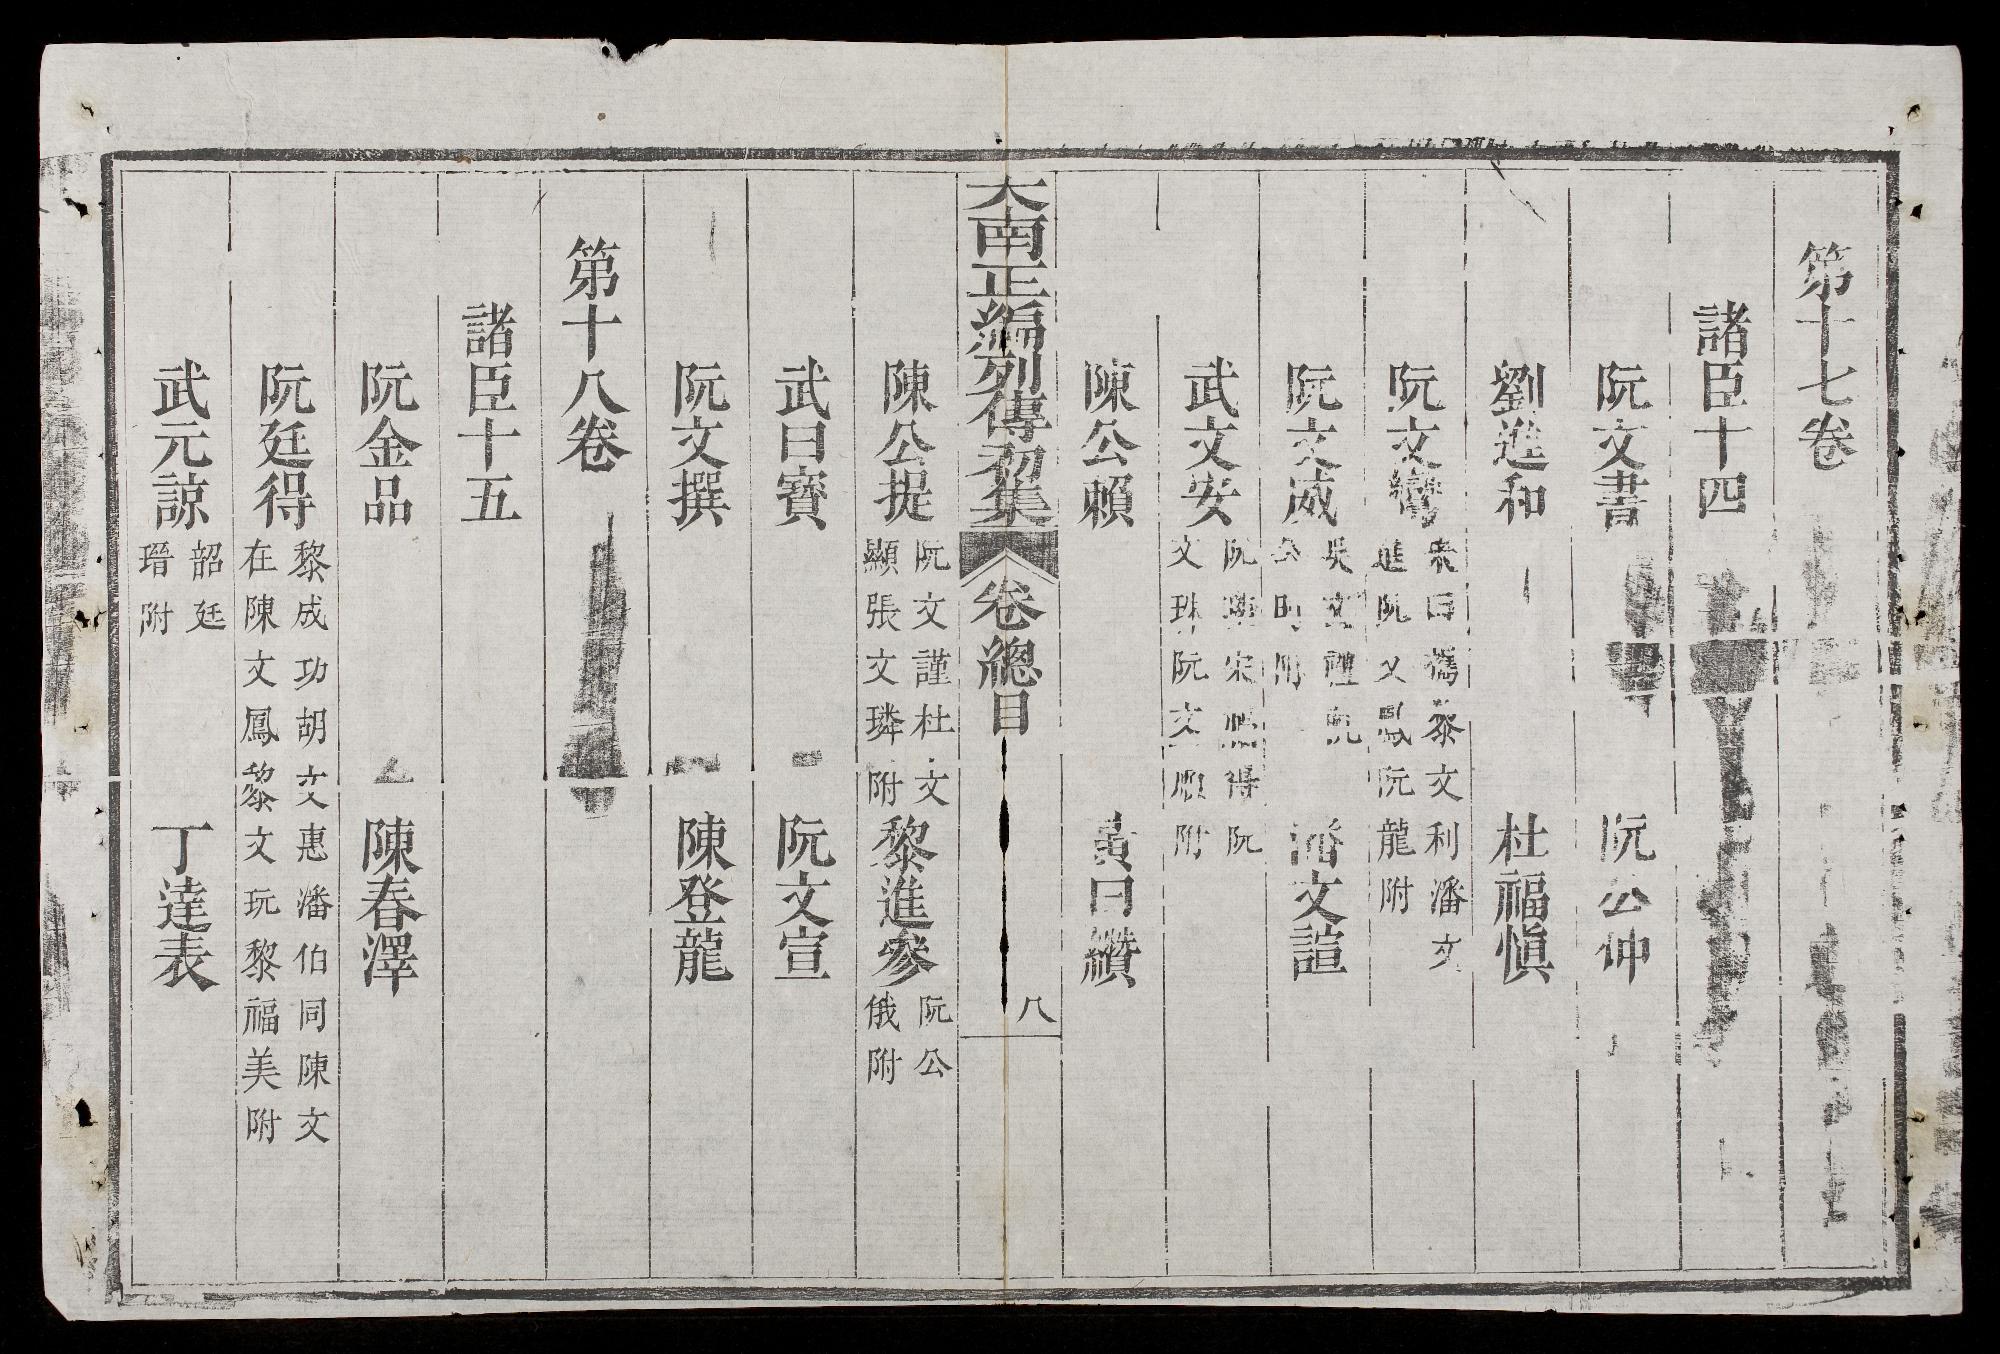 第十七卷
諸臣十四
阮文書 阮公仲
劉進和 杜福慎
阮文 黎文利潘文
進阮文鳳阮龍附
阮文威 吳文
公明附 潘文諠
武文安 阮 宋 得阮
文珠阮文順附
陳公賴 黃曰纘
大南正編列傳初集 卷總目 八
陳公提 阮文謹杜文
顯張文璘附 黎進參 阮公
俄附
武曰寶 阮文宣
阮文撰 陳登龍
第十八卷
諸臣十五
阮金品 陳春澤
阮廷得 黎成功胡文惠潘伯同陳文
在陳文鳳黎文玩黎福美附
武元諒 韶廷
瑨附 丁達表